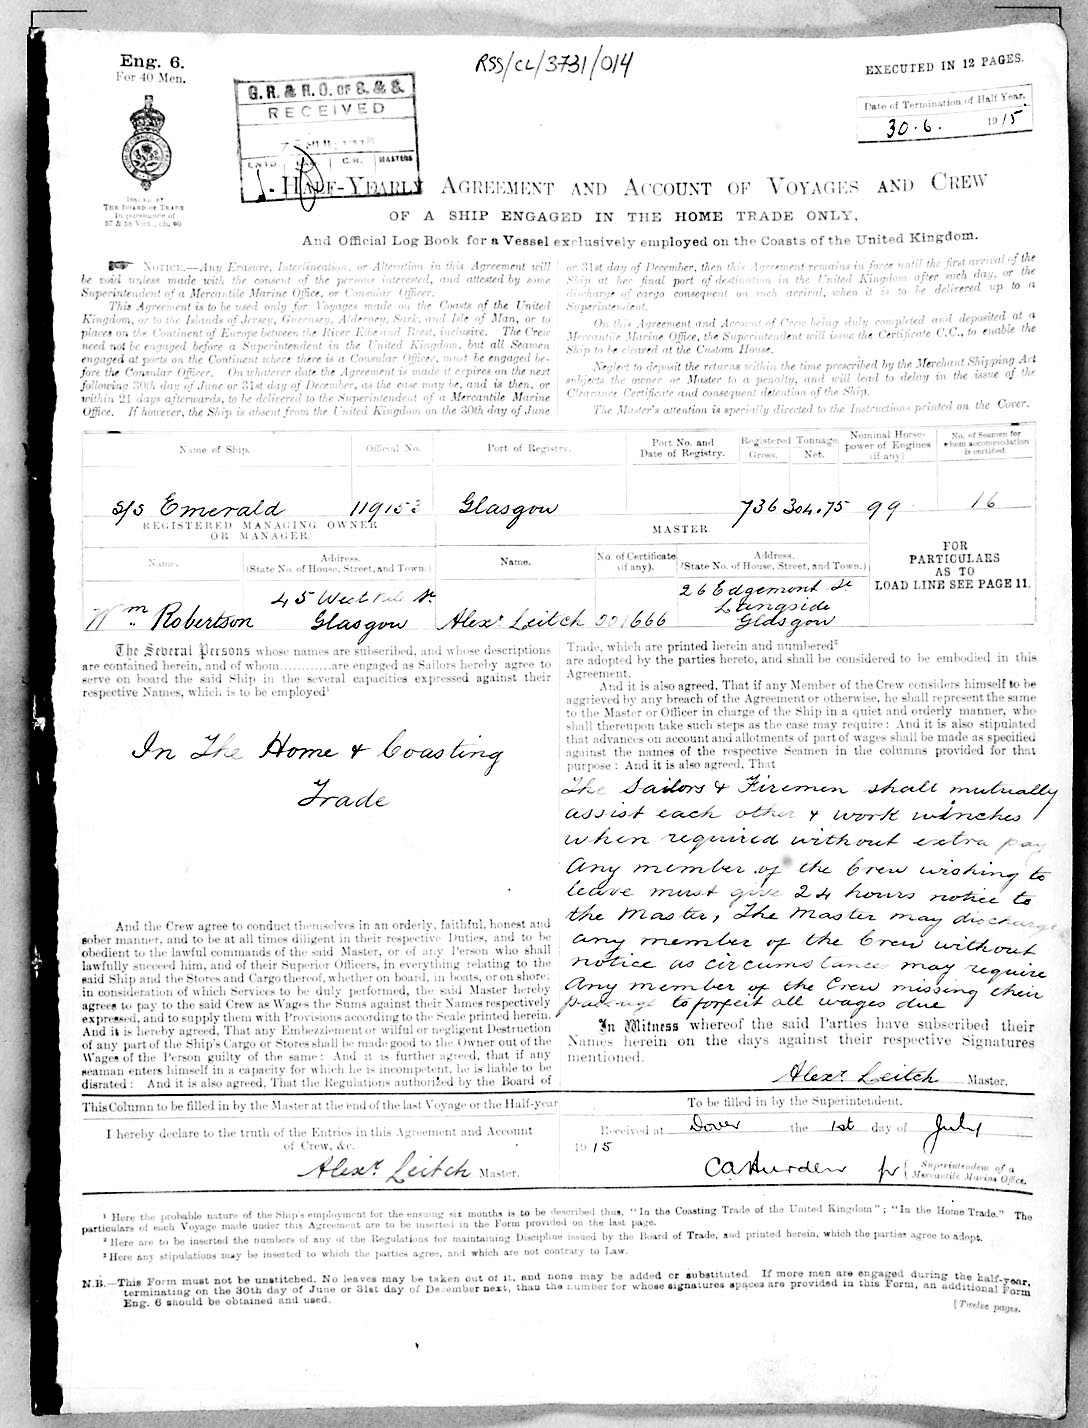 Eng. 6.
For 40 Men.
RSS/CL/3731/014
EXECUTED IN 12 PAGES.
Date of Termination of Half Year.
30.6. 1915
G.R. & R.O. OF S. & S.
RECEIVED
ENTD.
C.R.
MASTERS
ISSUED BY
THE BOARD OF TRADE
In pursuance of
57 & 58 Vict., ch. 60
HALF-YEARLY AGREEMENT AND ACCOUNT OF VOYAGES AND CREW
OF A SHIP ENGAGED IN THE HOME TRADE ONLY,
And Official Log Book for a Vessel exclusively employed on the Coasts of the United Kingdom.
NOTICE.—Any Erasure, Interlineation, or Alteration in this Agreement will
be void unless made with the consent of the persons interested, and attested by some
Superintendent of a Mercantile Marine Office, or Consular Officer.
This Agreement is to be used only for Voyages made on the Coasts of the United
Kingdom, or to the Islands of Jersey, Guernsey, Alderney, Sark, and Isle of Man, or to
places on the Continent of Europe between the River Elbe and Brest, inclusive. The Crew
need not be engaged before a Superintendent in the United Kingdom, but all Seamen
engaged at ports on the Continent where there is a Consular Officer, must be engaged be-
fore the Consular Officer. On whatever date the Agreement is made it expires on the next
following 30th day of June or 31st day of December, as the case may be, and is then, or
within 21 days afterwards, to be delivered to the Superintendent of a Mercantile Marine
Office. If however, the Ship is absent from the United Kingdom on the 30th day of June
or 31st day of December, then this Agreement remains in force until the first arrival of the
Ship at her final port of destination in the United Kingdom after such day, or the
discharge of cargo consequent on such arrival, when it is to be delivered up to a
Superintendent.
On this Agreement and Account of Crew being duly completed and deposited at a
Mercantile Marine Office, the Superintendent will issue the Certificate C.C., to enable the
Ship to be cleared at the Custom House.
Neglect to deposit the returns within the time prescribed by the Merchant Shipping Act
subjects the owner or Master to a penalty, and will lead to delay in the issue of the
Clearance Certificate and consequent detention of the Ship.
The Master's attention is specially directed to the Instructions printed on the Cover.
Name of Ship.
Official No.
Port of Registry.
Port No. and
Date of Registry.
Registered Tonnage
Gross.
Net.
Nominal Horse-
power of Engines
(if any)
No. of Seamen for
whom accommodation
is certified.
S/S Emerald 119153 Glasgow 736 304.75 99 16
REGISTERED MANAGING OWNER
OR MANAGER.
MASTER.
Name.
Address.
(State No. of House, Street, and Town.)
Name.
No. of Certificate
(if any).
Address.
(State No. of House, Street, and Town.)
FOR
PARTICULARS
AS TO
LOAD LINE SEE PAGE 11.
Wm Robertson
45 West Nile St
Glasgow
Alexr Leitch 001666
26 Edgemont St
Langside
Glasgow
The Several Persons whose names are subscribed, and whose descriptions
are contained herein, and of whom............are engaged as Sailors hereby agree to
serve on board the said Ship in the several capacities expressed against their
respective Names, which is to be employed¹
In The Home & Coasting
Trade
And the Crew agree to conduct themselves in an orderly, faithful, honest and
sober manner, and to be at all times diligent in their respective Duties, and to be
obedient to the lawful commands of the said Master, or of any Person who shall
lawfully succeed him, and of their Superior Officers, in everything relating to the
said Ship and the Stores and Cargo thereof, whether on board, in boats, or on shore;
in consideration of which Services to be duly performed, the said Master hereby
agrees to pay to the said Crew as Wages the Sums against their Names respectively
expressed, and to supply them with Provisions according to the Scale printed herein.
And it is hereby agreed, That any Embezzlement or wilful or negligent Destruction
of any part of the Ship's Cargo or Stores shall be made good to the Owner out of the
Wages of the Person guilty of the same: And it is further agreed, that if any
seaman enters himself in a capacity for which he is incompetent, he is liable to be
disrated: And it is also agreed, That the Regulations authorized by the Board of
Trade, which are printed herein and numbered²
are adopted by the parties hereto, and shall be considered to be embodied in this
Agreement.
And it is also agreed, That if any Member of the Crew considers himself to be
aggrieved by any breach of the Agreement or otherwise, he shall represent the same
to the Master or Officer in charge of the Ship in a quiet and orderly manner, who
shall thereupon take such steps as the case may require: And it is also stipulated
that advances on account and allotments of part of wages shall be made as specified
against the names of the respective Seamen in the columns provided for that
purpose: And it is also agreed, That
The Sailors & Firemen shall mutually
assist each other & work winches
when required without extra pay
Any member of the Crew wishing to
leave must give 24 hours notice to
the Master, The Master may discharge
any member of the Crew without
notice as circumstances may require
Any member of the Crew missing their
passage to forfeit all wages due
In Witness whereof the said Parties have subscribed their
Names herein on the days against their respective Signatures
mentioned.
Alexr Leitch Master.
This Column to be filled in by the Master at the end of the last Voyage or the Half-year
I hereby declare to the truth of the Entries in this Agreement and Account
of Crew, &c.
Alexr Leitch Master.
To be filled in by the Superintendent.
Received at Dover the 1st day of July
1915
CA Hurden pr { Superintendent of a
Mercantile Marine Office.
¹ Here the probable nature of the Ship's employment for the ensuing six months is to be described thus, "In the Coasting Trade of the United Kingdom"; "In the Home Trade." The
particulars of each Voyage made under this Agreement are to be inserted in the Form provided on the last page.
² Here are to be inserted the numbers of any of the Regulations for maintaining Discipline issued by the Board of Trade, and printed herein, which the parties agree to adopt.
³ Here any stipulations may be inserted to which the parties agree, and which are not contrary to Law.
N.B.—This Form must not be unstitched. No leaves may be taken out of it, and none may be added or substituted. If more men are engaged during the half-year,
terminating on the 30th day of June or 31st day of December next, than the number for whose signatures spaces are provided in this Form, an additional Form
Eng. 6 should be obtained and used.
[Twelve pages.